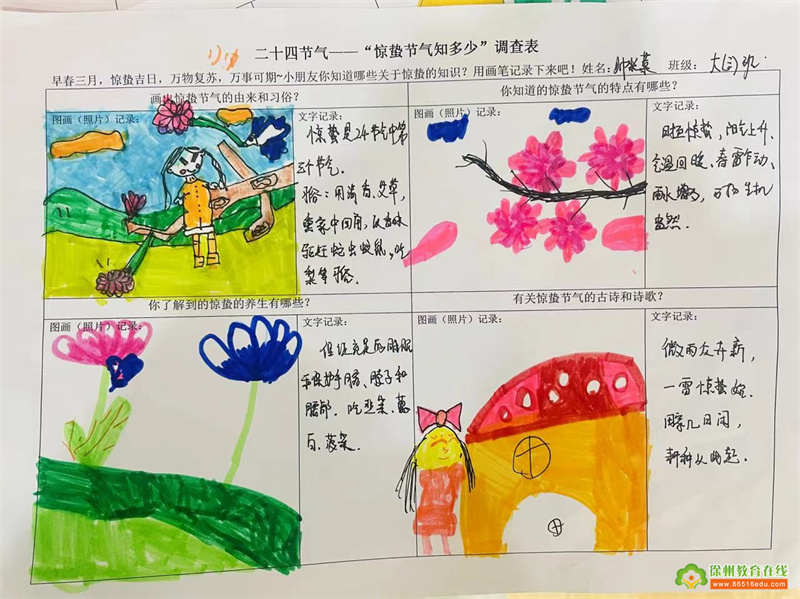 二十四节气——“惊蛰节气知多少”调查表
早春三月，惊蛰吉日，万物复苏，万事可期~小朋友你知道哪些关于惊蛰的知识？用画笔记录下来吧！姓名： 班级：大
画出惊蛰节气的由来和习俗？
图画（照片）记录：
文字记录：
惊蛰是24节气中第
三个节气.
俗：用清香、艾草，
熏家中四角，以
驱赶蛇虫蚊鼠，吃
梨等习俗.
你知道的惊蛰节气的特点有哪些？
图画（照片）记录：
文字记录：
惊蛰，阳气上升、
气温回暖、春雷乍动、
雨水增多，万物生机
盎然.
你了解到的惊蛰的养生有哪些？
图画（照片）记录：
文字记录：
保证充足的睡眠
手部、腿子和
腰部. 吃韭菜、
白、菠菜.
有关惊蛰节气的古诗和诗歌？
图画（照片）记录：
文字记录：
微雨众卉新，
一雷惊蛰始.
田家几日闲，
耕种从此起.
徐州教育在线
www.86516edu.com